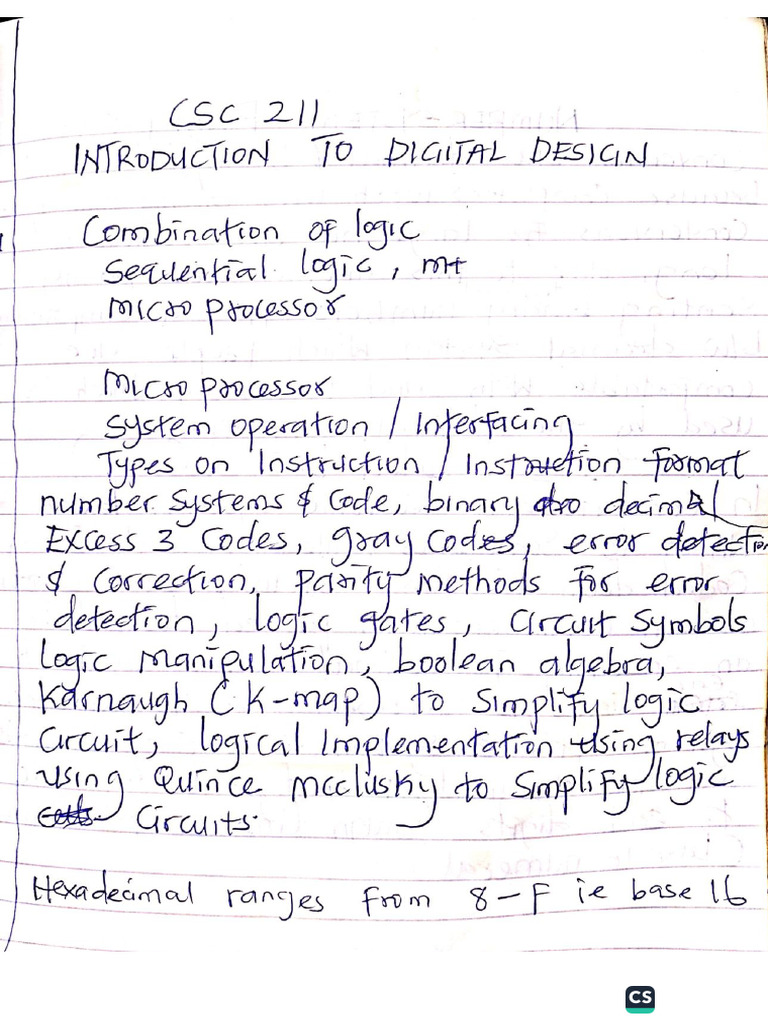 CSC 211
INTRODUCTION TO DIGITAL DESIGN
Combination of logic
Sequential logic, mt
Microprocessor
Microprocessor
System operation / Interfacing
Types on Instruction / Instruction format
number systems & code, binary decimal
Excess 3 Codes, gray codes, error detection
& Correction, parity methods for error
detection, logic gates, circuit symbols
logic manipulation, boolean algebra,
Karnaugh (K-map) to simplify logic
circuit, logical implementation using relays
using Quince mcclusky to simplify logic
circuits.
Hexadecimal ranges from 8-F ie base 16
CS